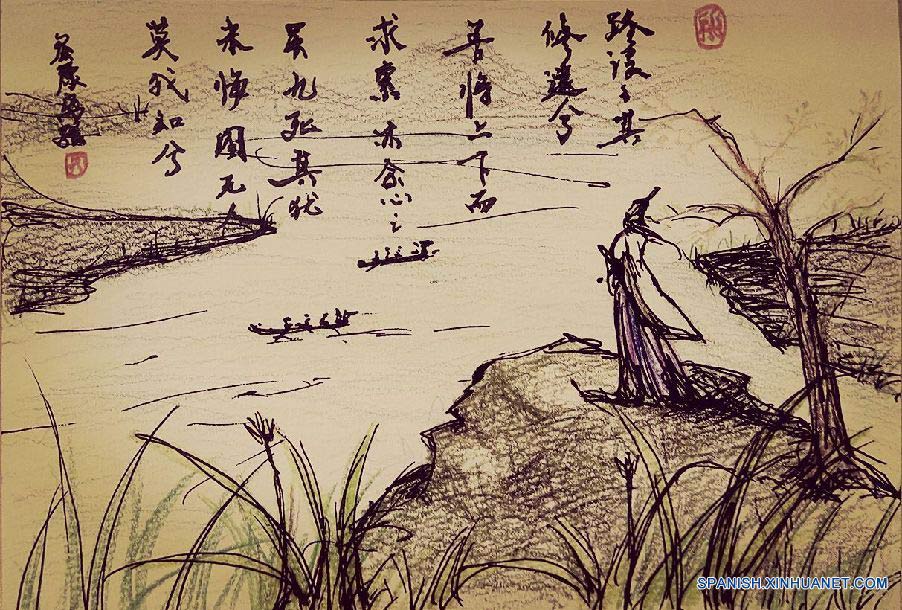 路漫々其
修遠兮
吾将上下而
求索 亦余心之
虽九死其犹
未悔 國无人
莫我知兮
SPANISH.XINHUANET.COM